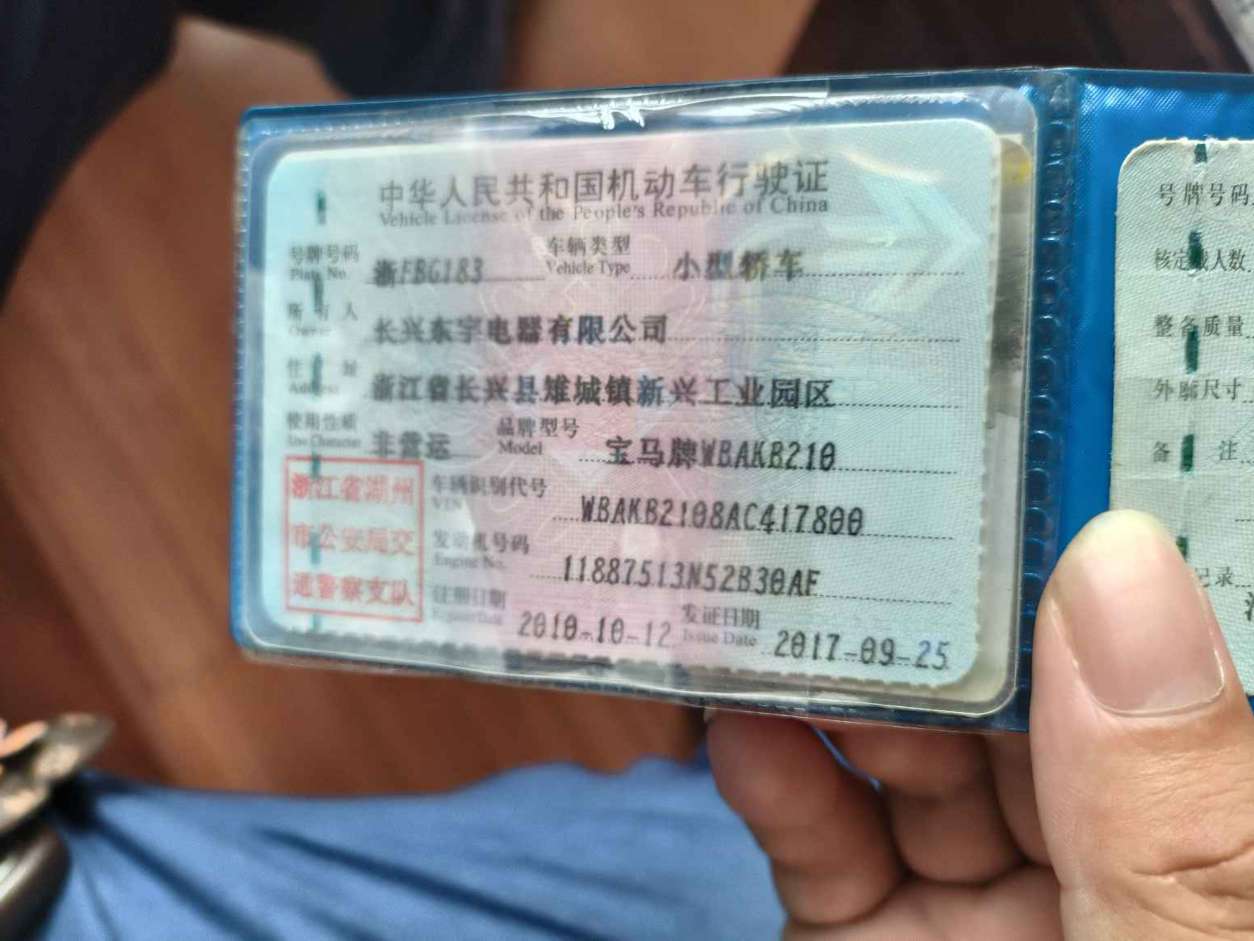 中华人民共和国机动车行驶证
Vehicle License of the People's Republic of China
号牌号码 浙FBG183 车辆类型 小型轿车
Plate No. Vehicle Type
所有人 长兴东宇电器有限公司
Owner
住址 浙江省长兴县雉城镇新兴工业园区
Address
使用性质 非营运 品牌型号 宝马牌WBAKB210
Use Character Model
车辆识别代号 WBAKB2108AC417800
VIN
发动机号码 11887513N52B30AF
Engine No.
注册日期 2010-10-12 发证日期 2017-09-25
Register Date Issue Date
浙江省湖州
市公安局交
通警察支队
号牌号码
核定载人数
整备质量
外廓尺寸
备注
记录